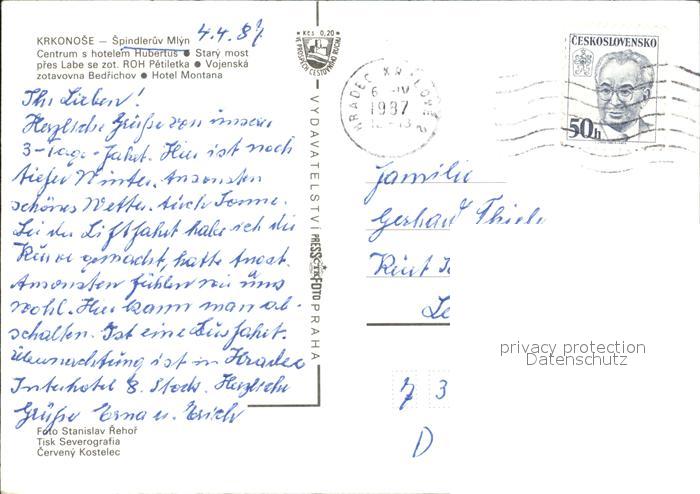 KRKONOŠE – Špindlerův Mlýn 4.4.87
Centrum s hotelem Hubertus ● Starý most
přes Labe se zot. ROH Pětiletka ● Vojenská
zotavovna Bedřichov ● Hotel Montana
Kčs 0,20
VE PROSPĚCH CESTOVNÍHO RUCHU
Ihr Lieben!
Herzliche Grüße von unserer
3-Tage-Fahrt. Hier ist noch
tiefer Winter. Ansonsten
schönes Wetter. Auch Sonne.
Bei der Liftfahrt habe ich die
Kurve gemacht, hatte Angst.
Ansonsten fühlen wir uns
wohl. Hier kann man ab-
schalten. Ist eine Busfahrt.
Übernachtung ist in Hradec
Interhotel 8. Stock. Herzliche
Grüße Erna u. Erich
Foto Stanislav Řehoř
Tisk Severografia
Červený Kostelec
VYDAVATELSTVÍ PRESSFOTO PRAHA
ČTK
HRADEC KRÁLOVÉ 2
6. IV
1987
ČESKOSLOVENSKO
50h
Familie
Gerhard Thiele
Kurt
Le
7 3
D
privacy protection
Datenschutz